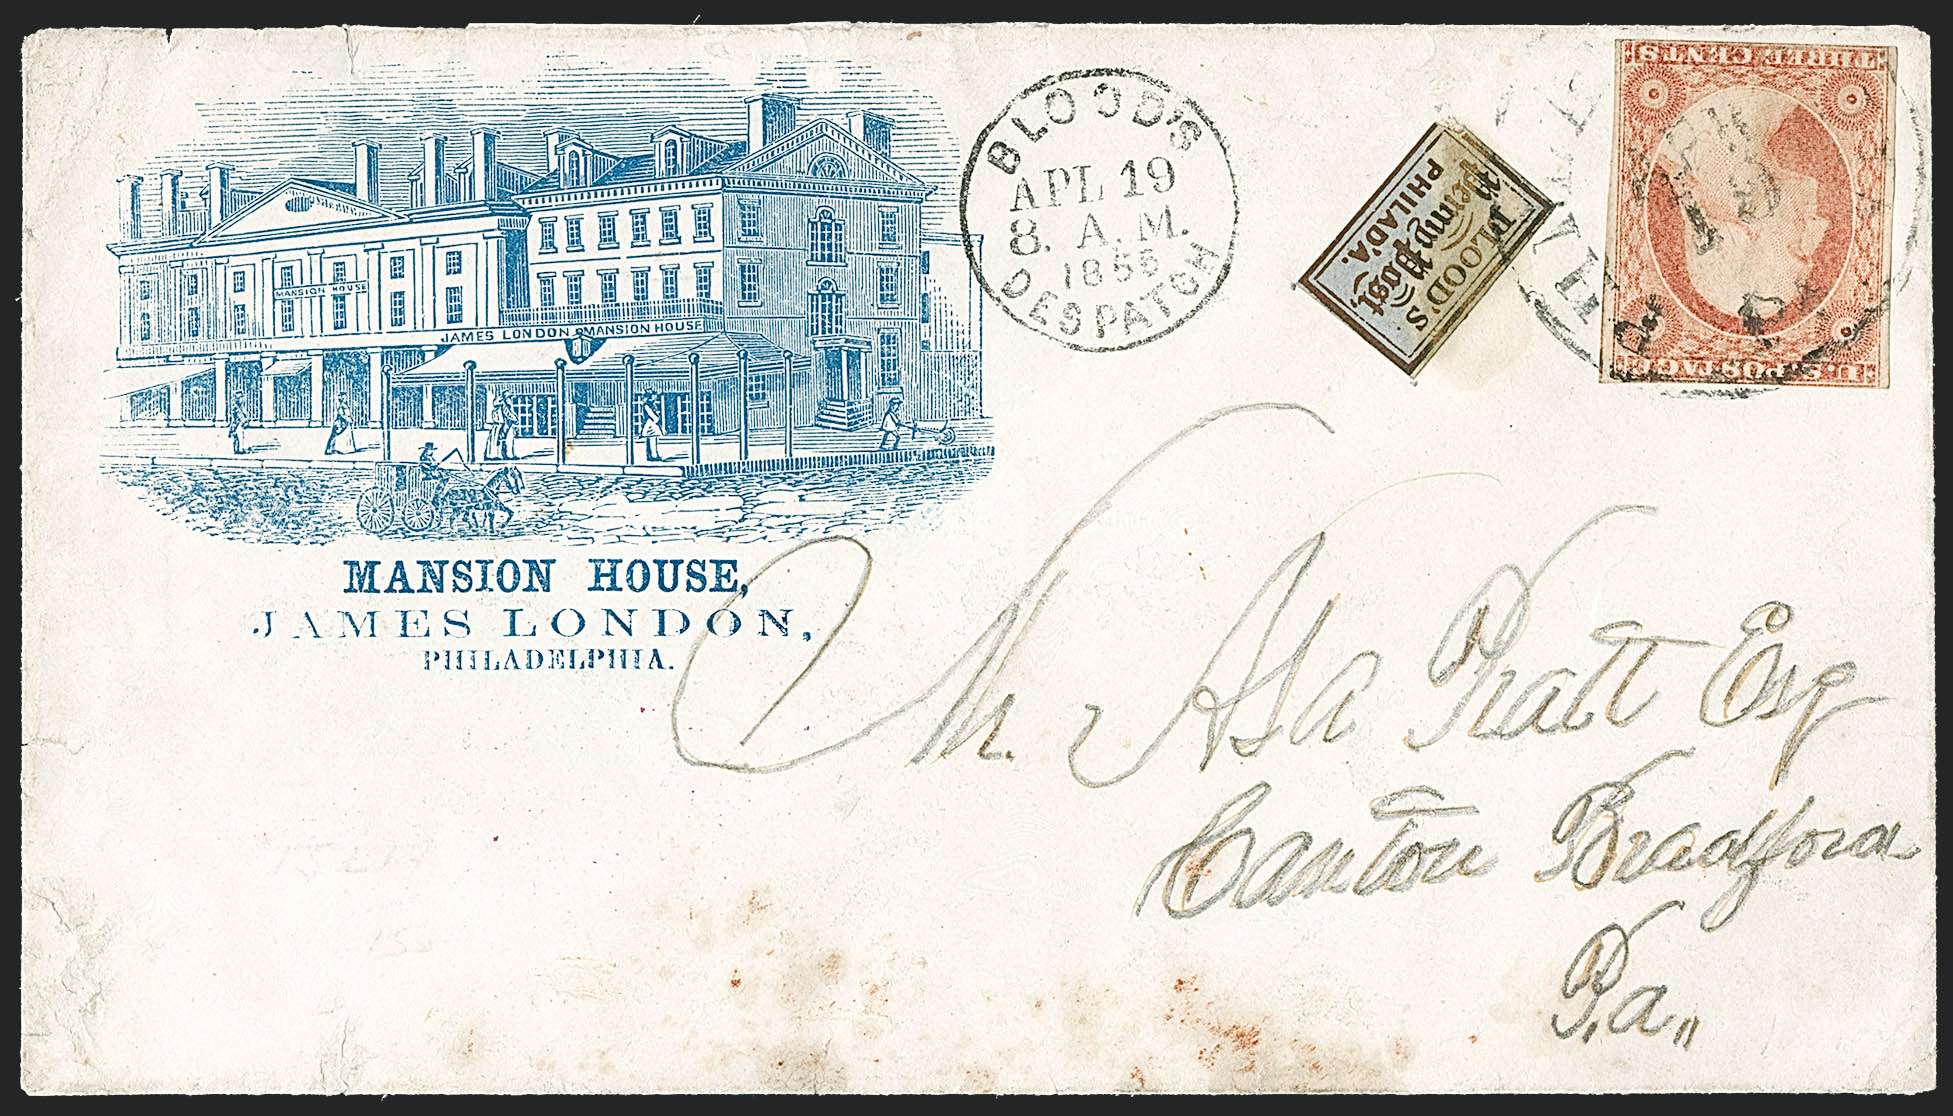 BLOOD'S
APL 19
8. A.M.
1855
DESPATCH
BLOOD'S
Penny Post
PHILAD'A.
THREE CENTS
U.S. POSTAGE
MANSION HOUSE
JAMES LONDON MANSION HOUSE
MANSION HOUSE,
JAMES LONDON,
PHILADELPHIA.
Mr. Asa Pratt Esq
Canton Bradford
Pa.